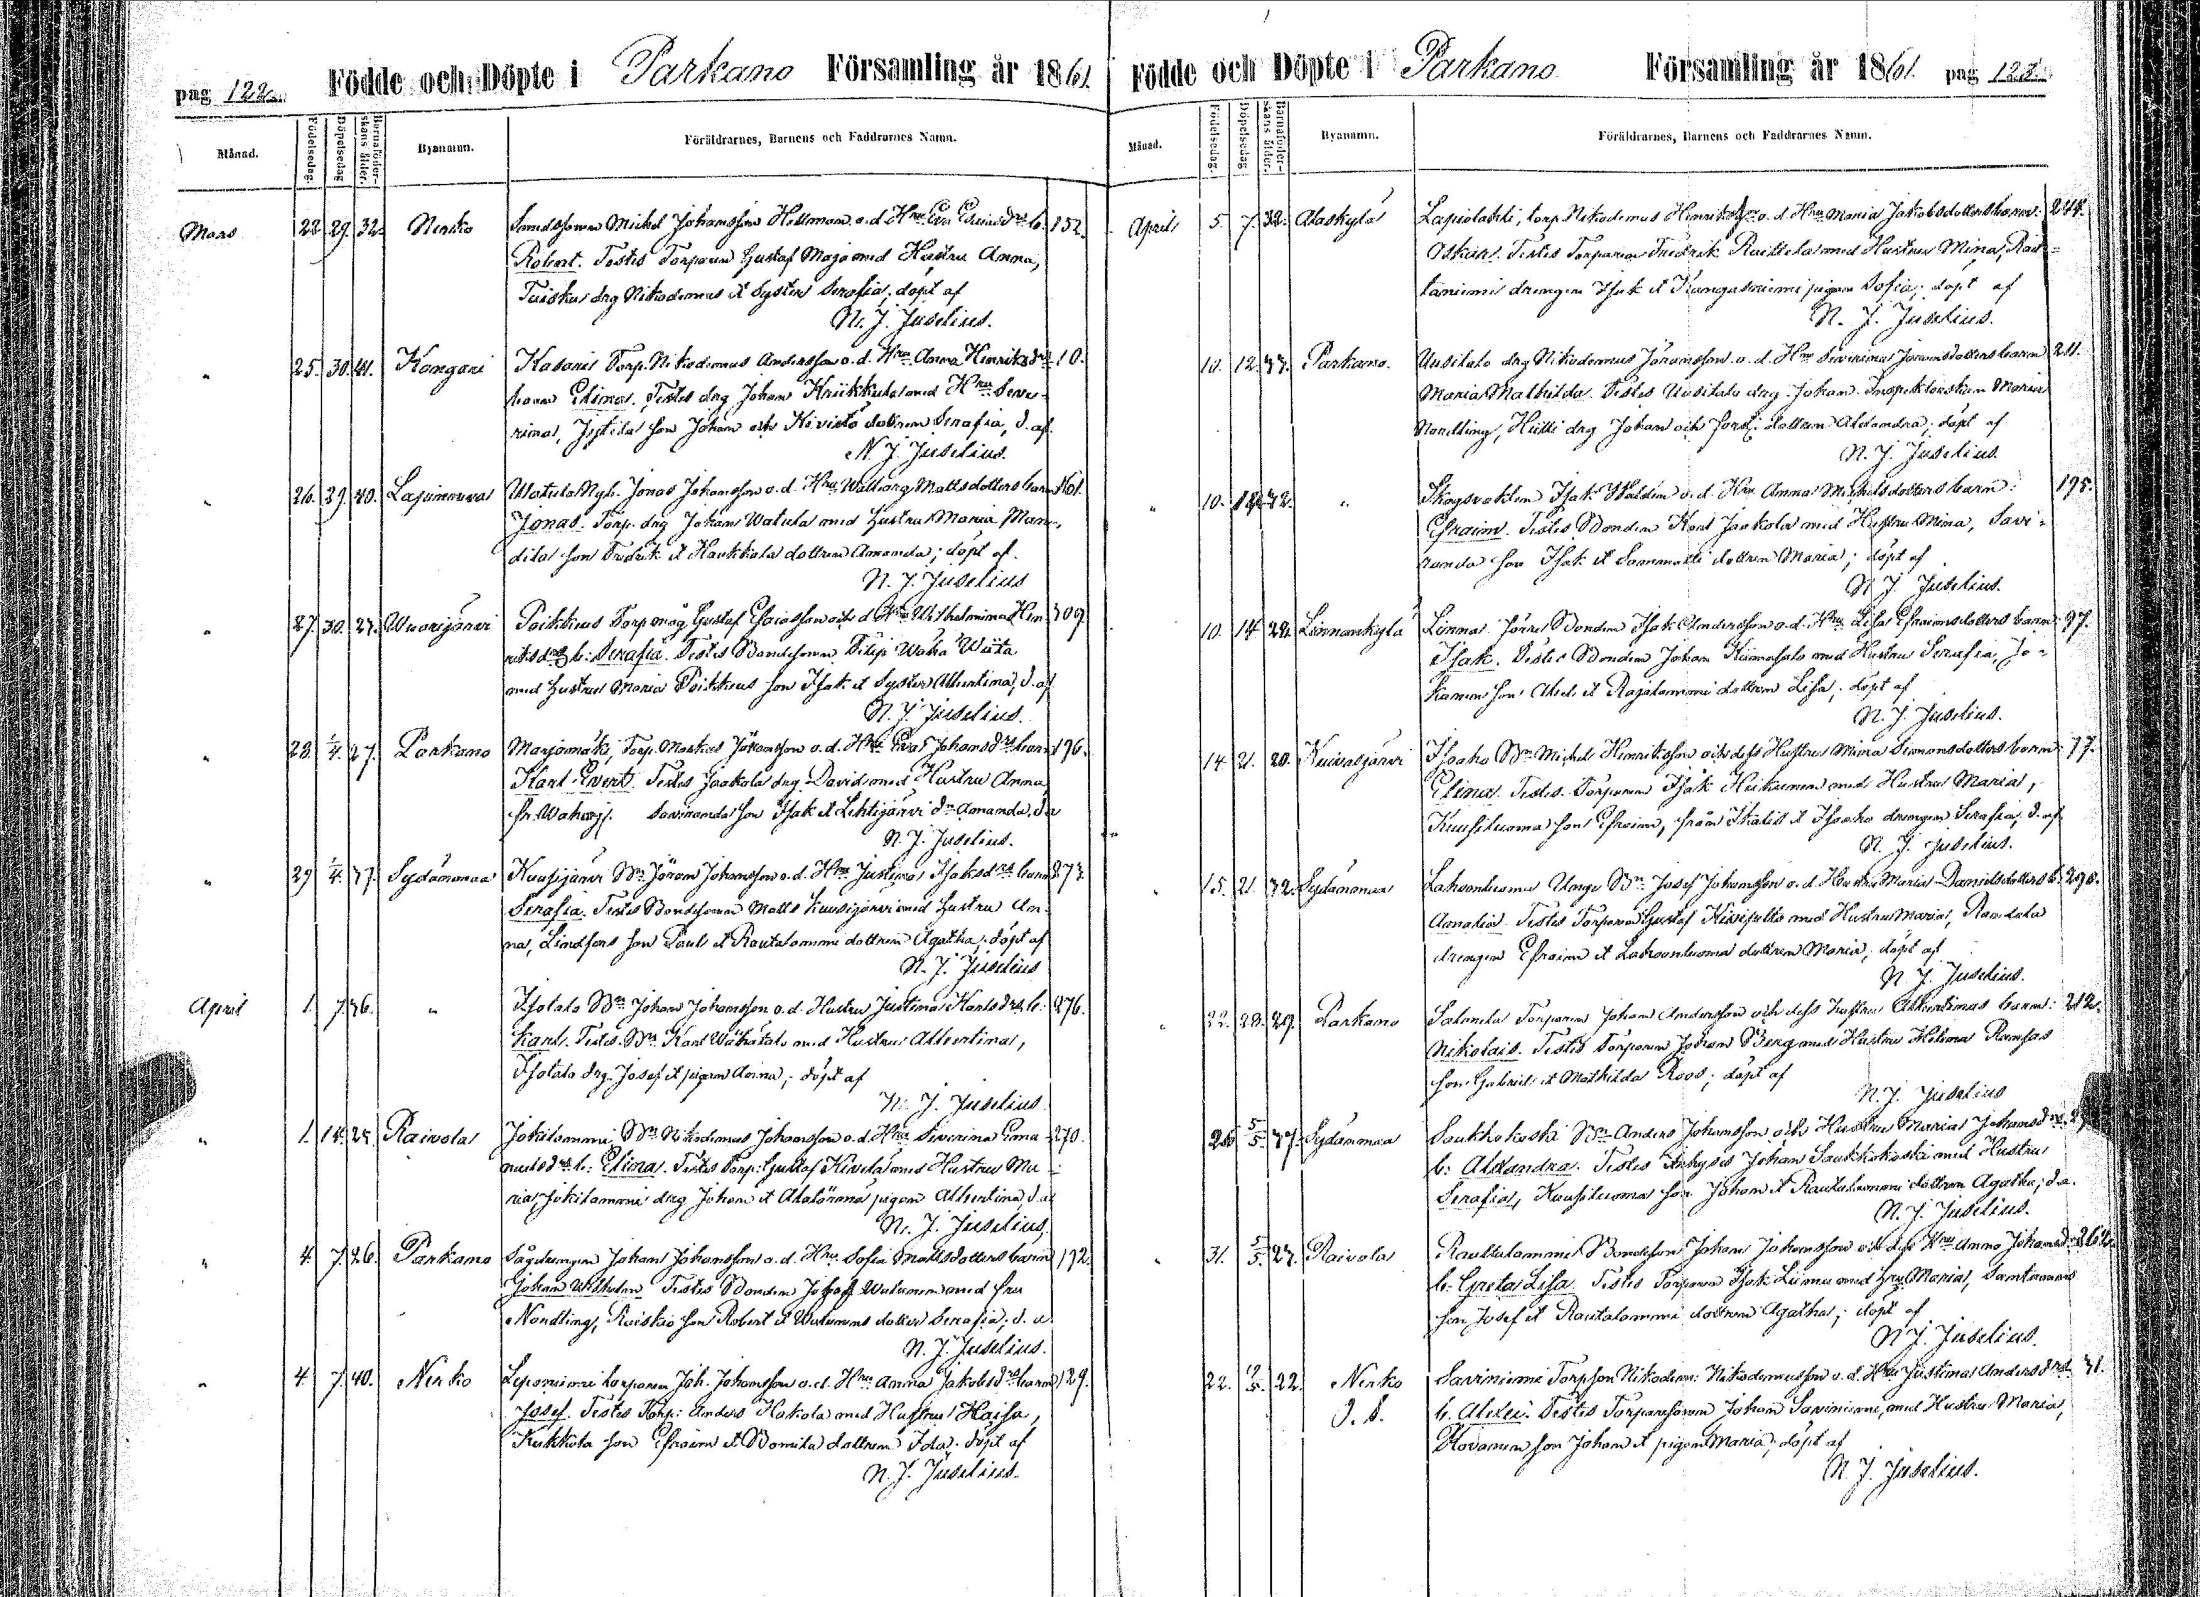 pag 122. Födde och Döpte i Parkano Församling år 1861.
Månad. Födelsedag. Döpelsedag Barnaföderskans ålder. Byanamn. Föräldrarnes, Barnens och Faddrarnes Namn.
Mars 22 29. 32. Nerko Michel Johansson Hellman o. d. Hru Eva b. 152.
Robert. Testes Torparen Gustaf Maja med Hustru Anna,
drg Nikodemus et Syster Serafia; döpt af
N. J. Juselius.
" 25. 30. 41. Kangari Torp. Nikodemus Andersson o. d. Hru Anna Henriksdrs 10.
barn Elina. Testes drg Johan med Hru Seve-
rina, son Johan och Kivistö dottren Serafia, d. af
N. J. Juselius.
" 26. 29. 40. Watula Nyb. Jonas Johansson o. d. Hru Walborg Mattsdotters barn 161.
Jonas. Torp. drg Johan Watula med hustru Maria, Man-
dila son Fredrik et Haukkala dottren Amanda; döpt af
N. J. Juselius
" 27. 30. 27. Wuorijärvi Poikkeus Gustaf Esaiasson och d. Hru Wilhelmina Hen- 309
riksdrs b: Serafia. Testes Bondesonen Filip Wäha Wiita
med hustru Maria Poikkeus son Isak et Syster Albertina, d. af
N. J. Juselius.
" 28. 1/4. 27. Parkano Marjamäki, Torp. Markus Johansson o. d. Hru Eva Johansdrs barn 196.
Karl Evert. Testes Jaakola drg David med Hustru Anna,
son Isak et Lehtijärvi dn Amanda, d. a
N. J. Juselius.
" 29 1/4. 37. Sydänmaa Kuusijärvi Bn Johan Johansson o. d. Hru Justina Isaksdrs barn 273.
Serafia. Testes Bondesonen Matts Kuusijärvi med hustru An-
na, Lindfors son Paul et Rautalammi dottren Agatha; döpt af
N. J. Juselius
April 1. 7. 36. " Isotalo Bn Johan Johansson o. d. Hustru Justina Karlsdrs b: 276.
Karl. Testes. Bn Karl Wähätalo med Hustru Albertina,
Isotalo drg. Josef et pigan Anna; döpt af
N. J. Juselius
" 1. 14. 25. Raivola Jokilammi Bn Nikodemus Johansson o. d. Hru Severina Ema- 270.
nuelsdrs b: Elina. Testes Torp: Gustaf Kivelä med Hustru Ma-
ria, Jokilammi drg Johan et pigan Albertina, d. af
N. J. Juselius.
" 4. 7. 26. Parkano Sågdrengen Johan Johansson o. d. Hru Sofia Mattsdotters barn 192.
Johan Wilhelm. Testes Bonden Wuorinen med fru
Nordling, son Robert et dotter Serafia; d. a
N. J. Juselius.
" 4. 7. 40. Nerko Leponiemi torparen Joh. Johansson o. d. Hru Anna Jakobsdrs barn 129.
Josef. Testes Torp: Anders Hakola med Hustru Kaisa,
Kukkola son Efraim et dottren Ida; döpt af
N. J. Juselius.
Födde och Döpte i Parkano Församling år 1861. pag 123.
Månad. Födelsedag. Döpelsedag Barnaföderskans ålder. Byanamn. Föräldrarnes, Barnens och Faddrarnes Namn.
April 5. 7. 32. Alaskylä torp. Nikodemus Henriksson o. d. Hru Maria Jakobsdotters barn: 244.
Oskar. Testes Torparen Fredrik Raittila med Hustru Mina, Rai-
taniemi drengen Isak et Kangasniemi pigan Sofia; döpt af
N. J. Juselius.
10. 12. 33. Parkano. Uusitalo drg Nikodemus Johansson o. d. Hru Severina Johansdotters barn 211.
Maria Mathilda. Testes Uusitalo drg. Johan. Inspektorskan Maria
Nordling, drg Johan och dottren Alexandra; döpt af
N. J. Juselius.
" 10. 32. " Skogsvakten Isak o. d. Hru Anna Michelsdotters barn: 195.
Efraim. Testes Bonden Karl Jaakola med Hustru Mina, Savi-
randa son Isak et Sammatti dottren Maria; döpt af
N. J. Juselius.
10. 14. 28. Linnankylä Linna Bonden Isak Andersson o. d. Hru Lisa Efraimsdotters barn 97.
Isak. Testes Bonden Johan med Hustru Serafia, Jo-
kanen son Abel et Rajalammi dottren Lisa; döpt af
N. J. Juselius.
14. 21. 20. Kuivasjärvi Isoaho Bn Michel Henriksson och dess Hustru Mina Simonsdotters barn: 77.
Elina. Testes. Torparen Isak Heikinen med Hustru Maria,
Kuusiluoma son Efraim, från Ikalis et Isoaho drengen Serafia, d. af
N. J. Juselius.
15. 21. 32. Sydänmaa Lahonluoma Unge Bn Josef Johansson o. d. Hustru Maria Danielsdotters b: 290.
Amalia. Testes Torparen Gustaf med Hustru Maria,
drengen Efraim et Lahonluoma dottren Maria; döpt af
N. J. Juselius.
22. 28. 29. Parkano Salmela Torparen Johan Andersson och dess hustru Albertinas barn: 212.
Nikolais. Testes Torparen Johan Berg med Hustru Helena
son Gabriel et Mathilda Roos; döpt af
N. J. Juselius
26 5/5. 37. Sydänmaa Saukkokoski Bn Anders Johansson och Hustru Maria Johansdrs
b: Alexandra. Testes Johan Saukkokoski med Hustru
Serafia, Kuusiluoma son Johan et Rautalammi dottren Agatha; d. a.
N. J. Juselius.
" 31. 5/5. 27. Raivola Rautalammi Bondeson Johan Johansson och dess Hru Anna Johansd. 264.
b. Greta Lisa. Testes Torparen Isak Linna med hru Maria,
son Josef et Rautalammi dottren Agatha; döpt af
N. J. Juselius.
22. 22. Nerko Saviniemi Torpson Nikodem: Nikodemusson o. d. Hru Justina Andersdrs 31.
b. Alexei. Testes Torparesonen Johan Saviniemi, med Hustru Maria,
son Johan et pigan Maria; döpt af
N. J. Juselius.